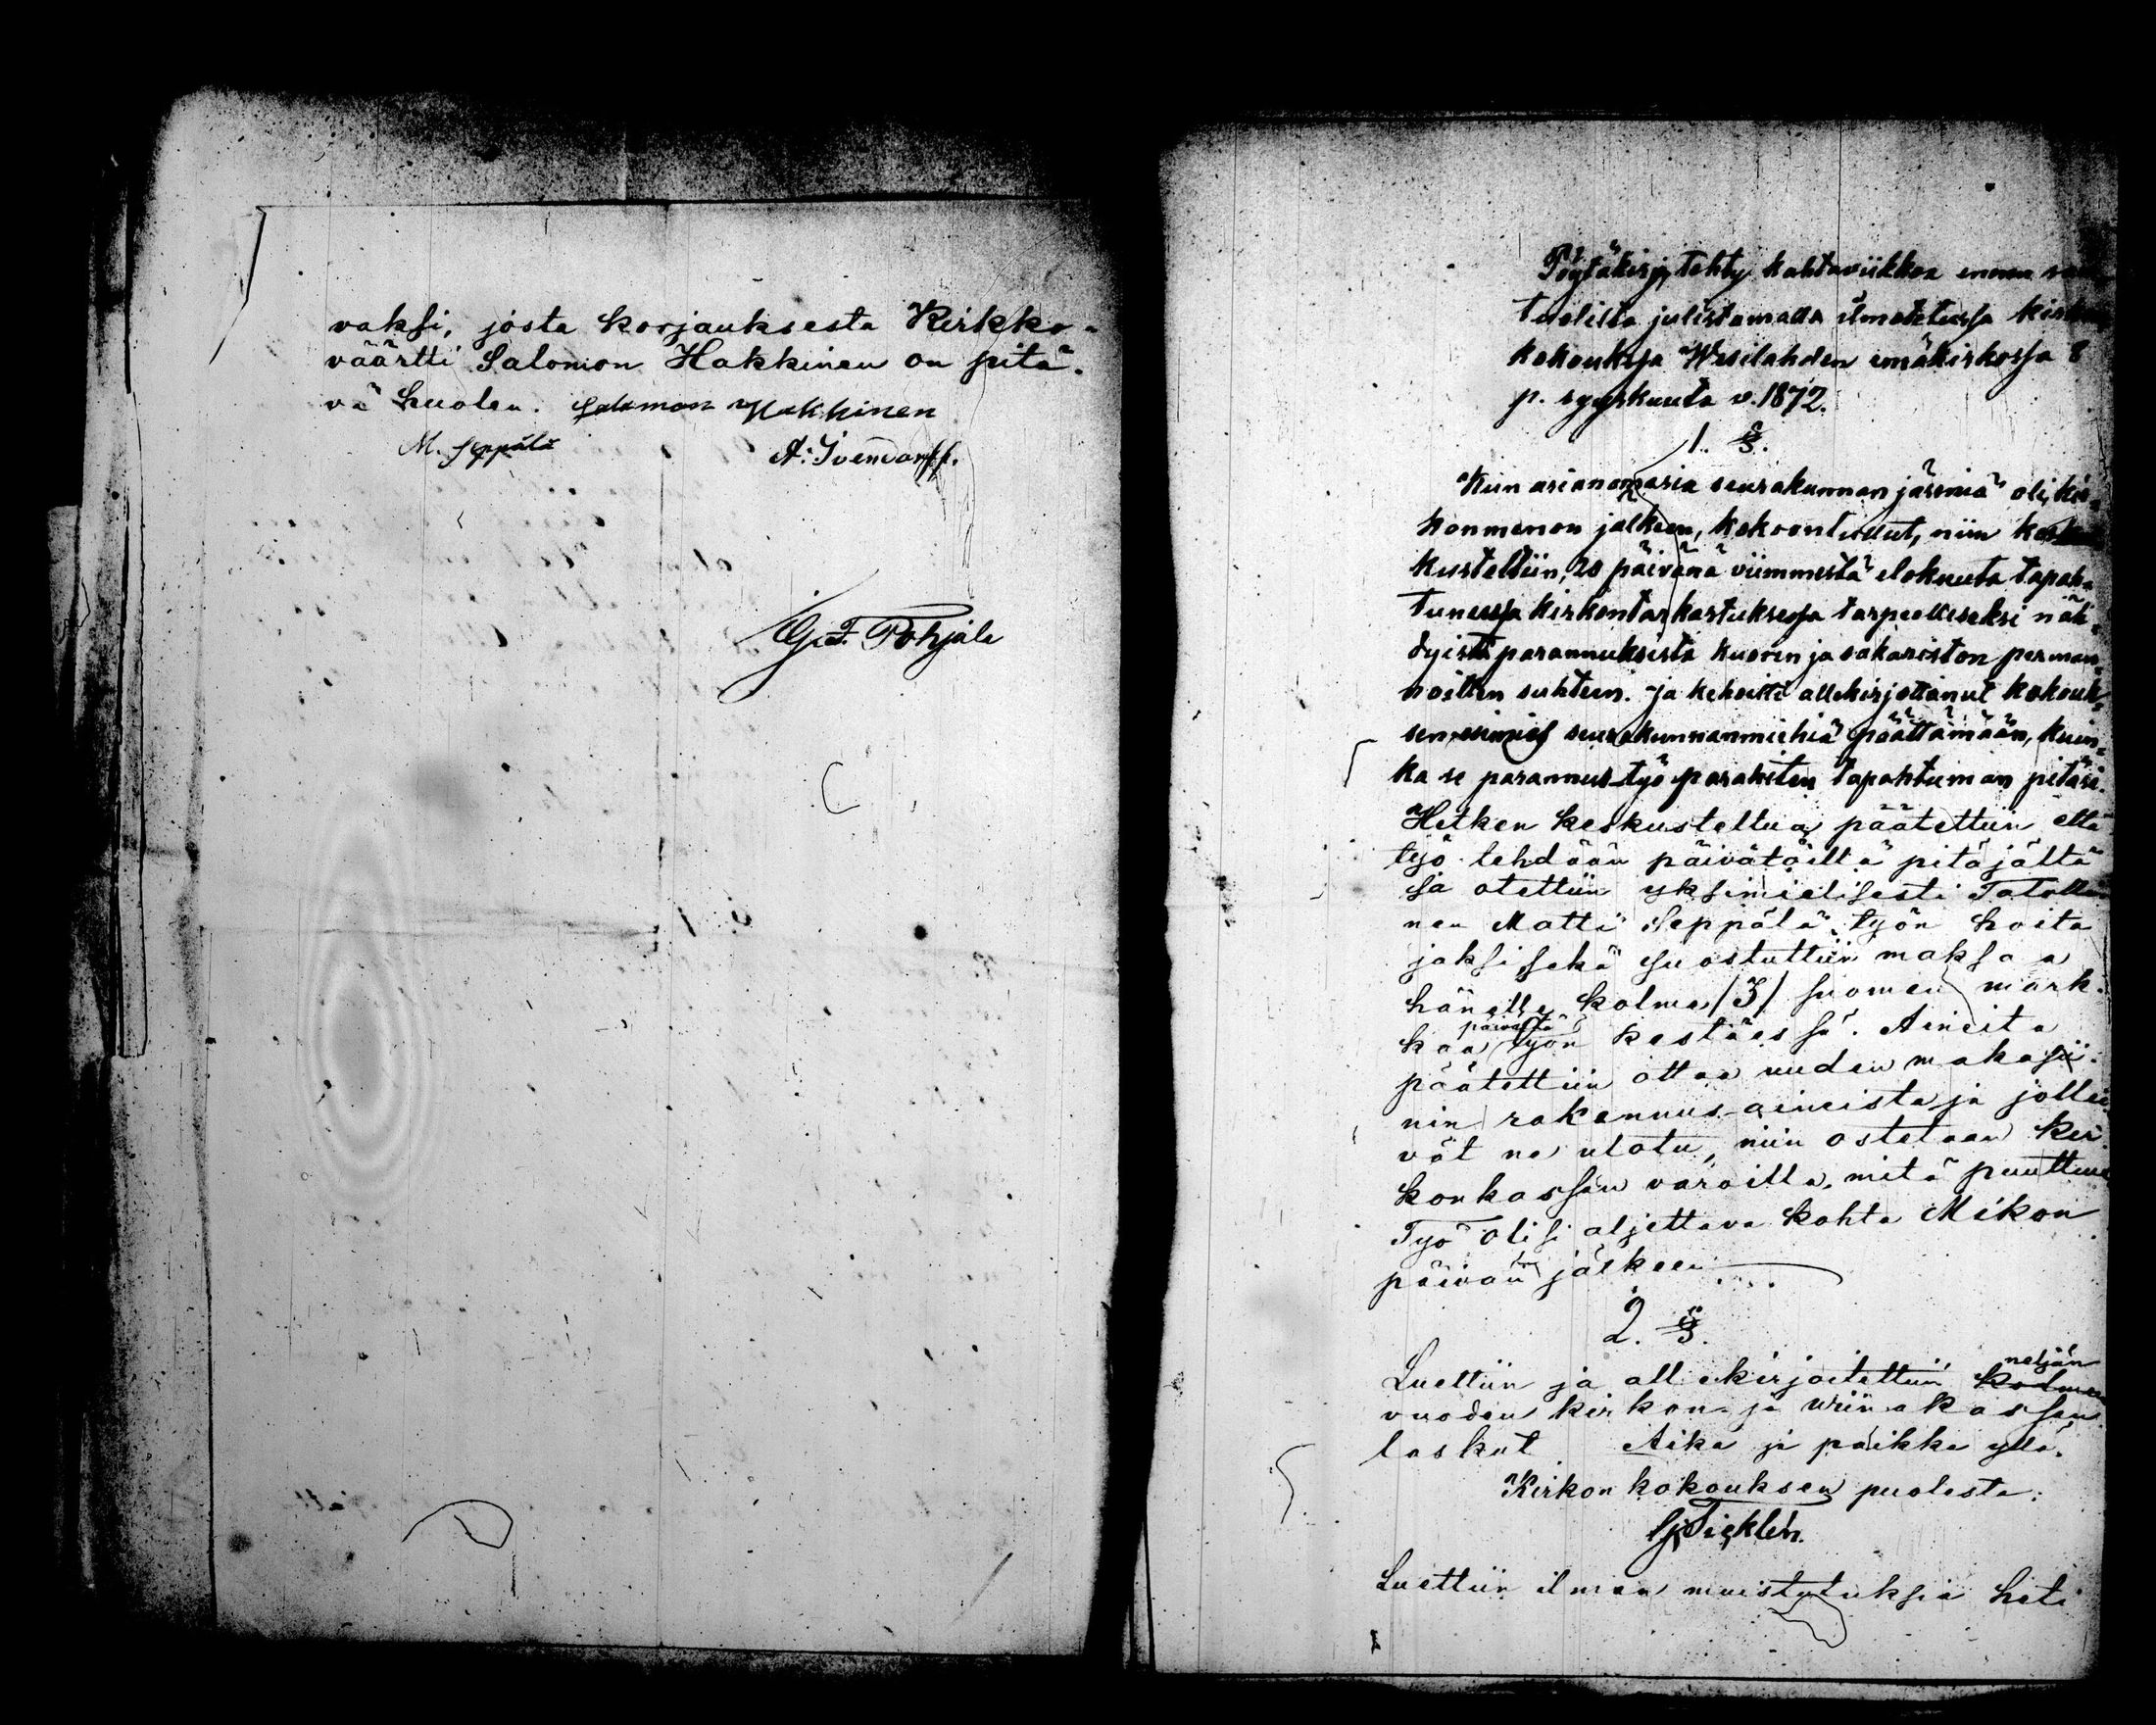 vaksi, josta korjauksesta Kirkko-
väärtti Salomon Hakkinen on pitä-
vä huolen. Salomon Hakkinen
M. Seppälä
G. F. Pohjala
Pöytäkirja, tehty kahtaviikkoa ennen
tuolista julistamalla ilmotetussa
kokouksessa Wesilahden emäkirkossa 8
p. syyskuuta v. 1872.
1. §.
Kun asianomasia seurakunnan jäseniä oli, kir-
konmenon jälkeen, kokoontullut, niin
kusteltiin, 20 päivänä viimmestä elokuuta tapah-
tuneessa kirkontarkastuksessa tarpeelliseksi näh-
dyistä parannuksista kuorin ja sakariston perman-
noitten suhteen. ja kehoitti allekirjottanut kokouk-
sen esimies seurakunnanmiehiä päättämään, kuin-
ka se parannus-työ parahiten tapahtuman pitäisi.
Hetken keskusteltua, päätettiin että
työ tehdään päivätöillä pitäjältä
ja otettiin yksimielisesti
nen Matti Seppälä työn hoita
jaksi, sekä suostuttiin maksaa
hänelle kolme /3/ suomen mark-
kaa päivältä työn kestäessä. Aineita
päätettiin ottaa uuden makasii-
nin rakennus-aineista ja jollei
vät ne ulotu, niin ostetaan kir-
konkassan varoilla, mitä puuttuu
Työ olisi aljettava kohta Mikon
päivän jälkeen.
2. §.
Luettiin ja allekirjoitettiin kolmen neljän
vuoden kirkon- ja viinakassan
laskut. Aika ja paikka yllä.
Kirkon kokouksen puolesta:
Luettiin ilman muistutuksia heti